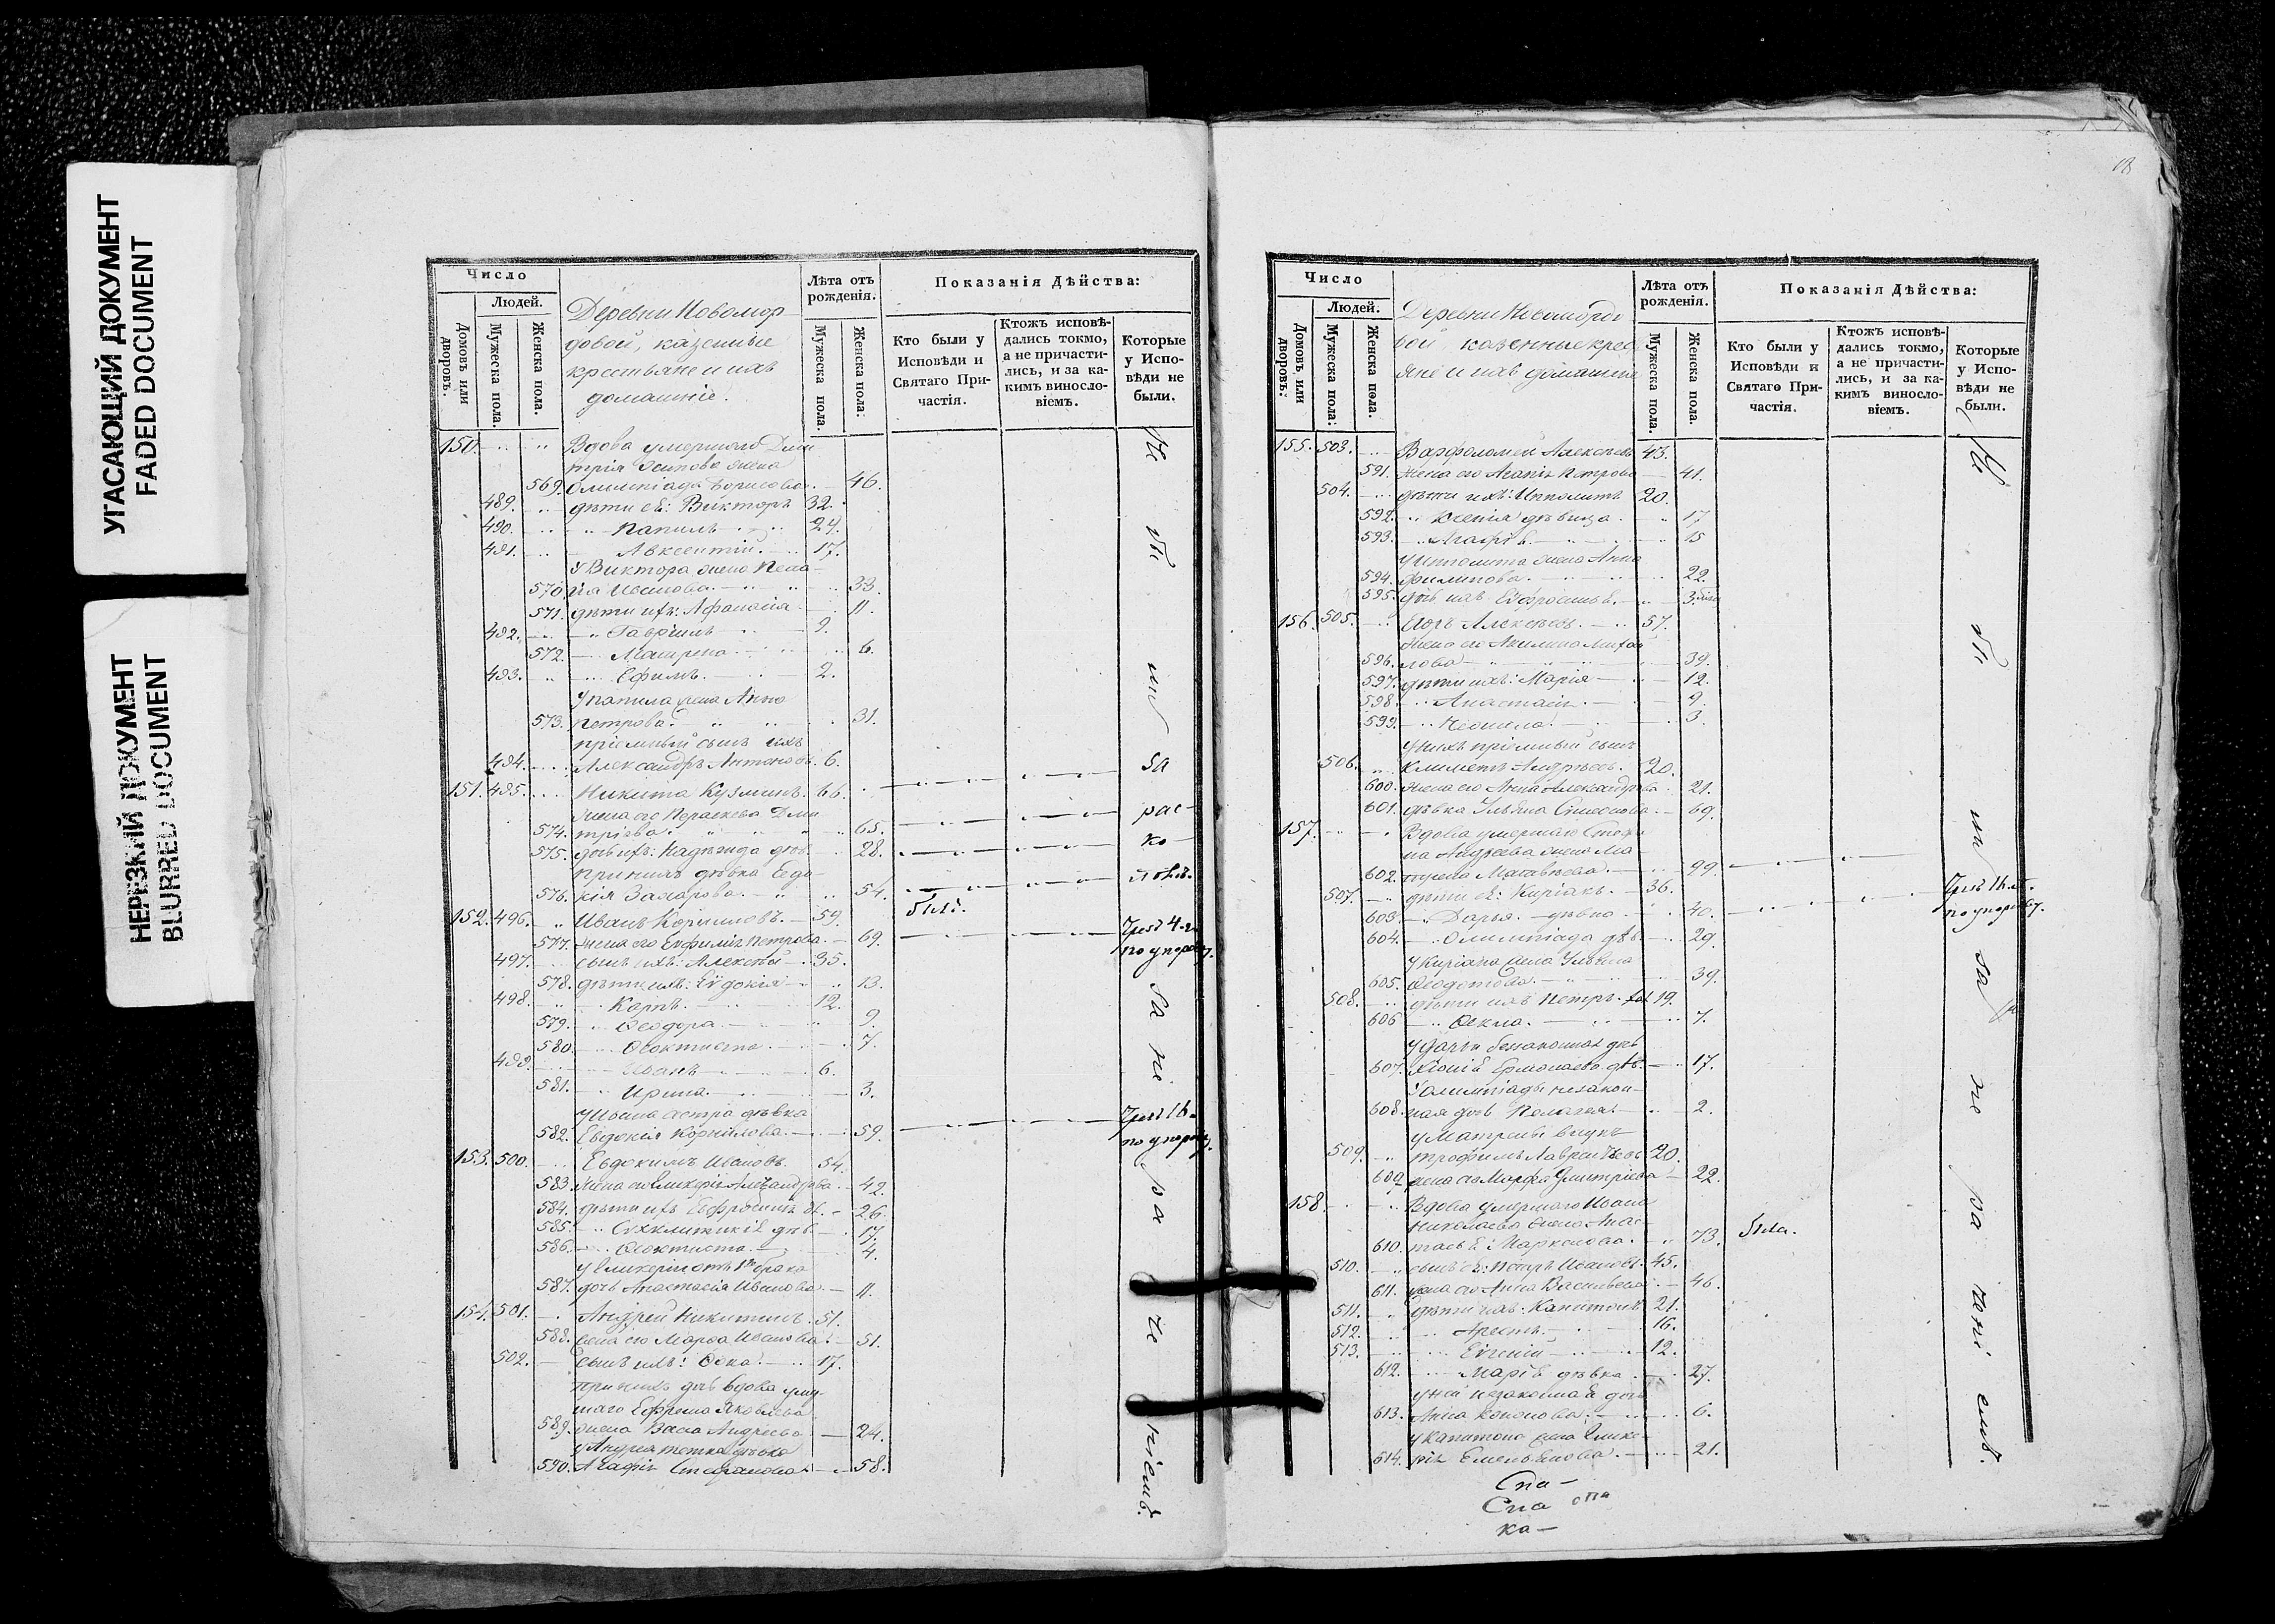 УГАСАЮЩИЙ ДОКУМЕНТ
FADED DOCUMENT
НЕРЕЗКИЙ ДОКУМЕНТ
BLURRED DOCUMENT
Число
Людей.
Домовъ или дворовъ.
Мужеска пола.
Женска пола.
Деревни Новомор-
довой, казенные
крестьяне и ихъ
домашніе.
Лѣта отъ рожденія.
Мужеска пола.
Женска пола:
Показанія Дѣйства:
Кто были у Исповѣди и Святаго При-частія.
Ктожъ исповѣ-дались токмо, а не причасти-лись, и за ка-кимъ винословіемъ.
Которые у Испо-вѣди не были.
150. Вдова умершаго Дми
трія Осипова жена
569. Олимпіада Борисова 46.
489. дѣти её: Викторъ 32.
490. Папилъ 24.
491. Авксентій 17.
У Виктора жена Пела-
570. гія Иванова 33.
571. дѣти ихъ: Афанасія 11.
492. Гавріилъ 9.
572. Матрена 6.
493. Ефимъ 2.
У Папила жена Анна
573. Петрова 31.
пріемный сынъ ихъ
494. Александръ Антоновъ. 6.
151. 495. Никита Кузминъ. 66.
Жена его Параскева Дми
574. тріева 65.
575. дочь ихъ: Надежда дѣв. 28.
При нихъ дѣвка Евдо-
576. кія Захарова 54.
152. 496. Иванъ Корниловъ. 59. былъ.
577. Жена его Евфимія Петрова. 69.
497. сынъ ихъ: Алексѣй 35.
578. дѣти ихъ: Евдокія 13.
498. Карпъ. 12.
579. Ѳеодора 9.
580. Ѳеоктиста 7.
499. Иванъ 6.
581. Ирина. 3.
У Ивана сестра дѣвка
582. Евдокія Корнилова. 59.
153. 500. Евдокимъ Ивановъ. 54.
583. Жена его Гликерія Александрова 42.
584. дѣти ихъ Евфросинія дѣ. 26.
585. Синклитикія дѣв. 17.
586. Ѳеоктиста. 4.
У Гликеріи отъ 1го брака
587. дочь Анастасія Иванова 11.
154. 501. Андрей Никитинъ. 51.
588. Жена его Марѳа Иванова 51.
502. сынъ ихъ: Ѳока. 17.
При нихъ дочь вдова умер-
шаго Ефрема Яковлева
589. жена Васса Андреева 24.
У Андрея тетка дѣвка
590. Агафія Степанова 58.
за
рас-
ко-
ломъ.
Число
Людей.
Домовъ или дворовъ:
Мужеска пола:
Женска пола.
Деревни Новомордо
вой, казенные крест
яне и ихъ домашніе
Лѣта отъ рожденія.
Мужеска пола.
Женска пола.
Показанія Дѣйства:
Кто были у Исповѣди и Святаго При-частія.
Ктожъ исповѣ-дались токмо, а не причасти-лись, и за ка-кимъ винослo-віемъ.
Которые у Испо-вѣди не были.
155. 503. Варфоломей Алексѣевъ 43.
591. Жена его Агапія Петрова 41.
504. дѣти ихъ: Ипполитъ 20.
592. Ксенія дѣвица. 17
593. Агафія. 15
У Ипполита жена Анна
594. Филипова. 22.
595. дочь ихъ Евфросинія. 3.
156. 505. Алексѣевъ. 57.
Жена его Акилина Михай
596. лова 39.
597. дѣти ихъ: Марія 12.
598. Анастасія 9.
599. Неонила. 3.
У нихъ пріемный сынъ
506. Климентъ Андреевъ. 20.
600. Жена его Анна Александрова 21.
601. дѣвка Ульяна Симеонова 69.
157. Вдова умершаго Степа
на Андреева жена Ма-
602. трена Матвѣева 99.
507. дѣти её: Киріакъ. 36.
603. Дарья. дѣвка 40.
604. Олимпіада дѣв. 29.
У Киріака жена Ульяна
605. Ѳедотова. 39.
508. дѣти ихъ Петръ. 19.
606 Ѳекла. 7.
У Дарьи беззаконная дочь
607. Хіонія Ермолаева дѣв. 17.
У Олимпіады незакон-
608. ная дочь Пелагея. 2.
У Матрены внукъ
509. Трофимъ Лаврентьевъ 20.
609. жена его Марфа Дмитріева 22.
158. Вдова умершаго Ивана
Николаева жена Анас-
610. тасія Маркелова. 73. была.
510. сынъ её: Петръ Ивановъ. 45.
611. жена его Анна Васильева 46.
511. дѣти ихъ: Капитонъ. 21.
512. Арестъ. 16.
513. Евгеній 12.
612. Марія дѣвка 27.
У ней незаконная дочь
613. Анна Кононова. 6.
У Капитона жена Глике-
614. рія Емельянова. 21.
Спа-
Спа спа
ка-